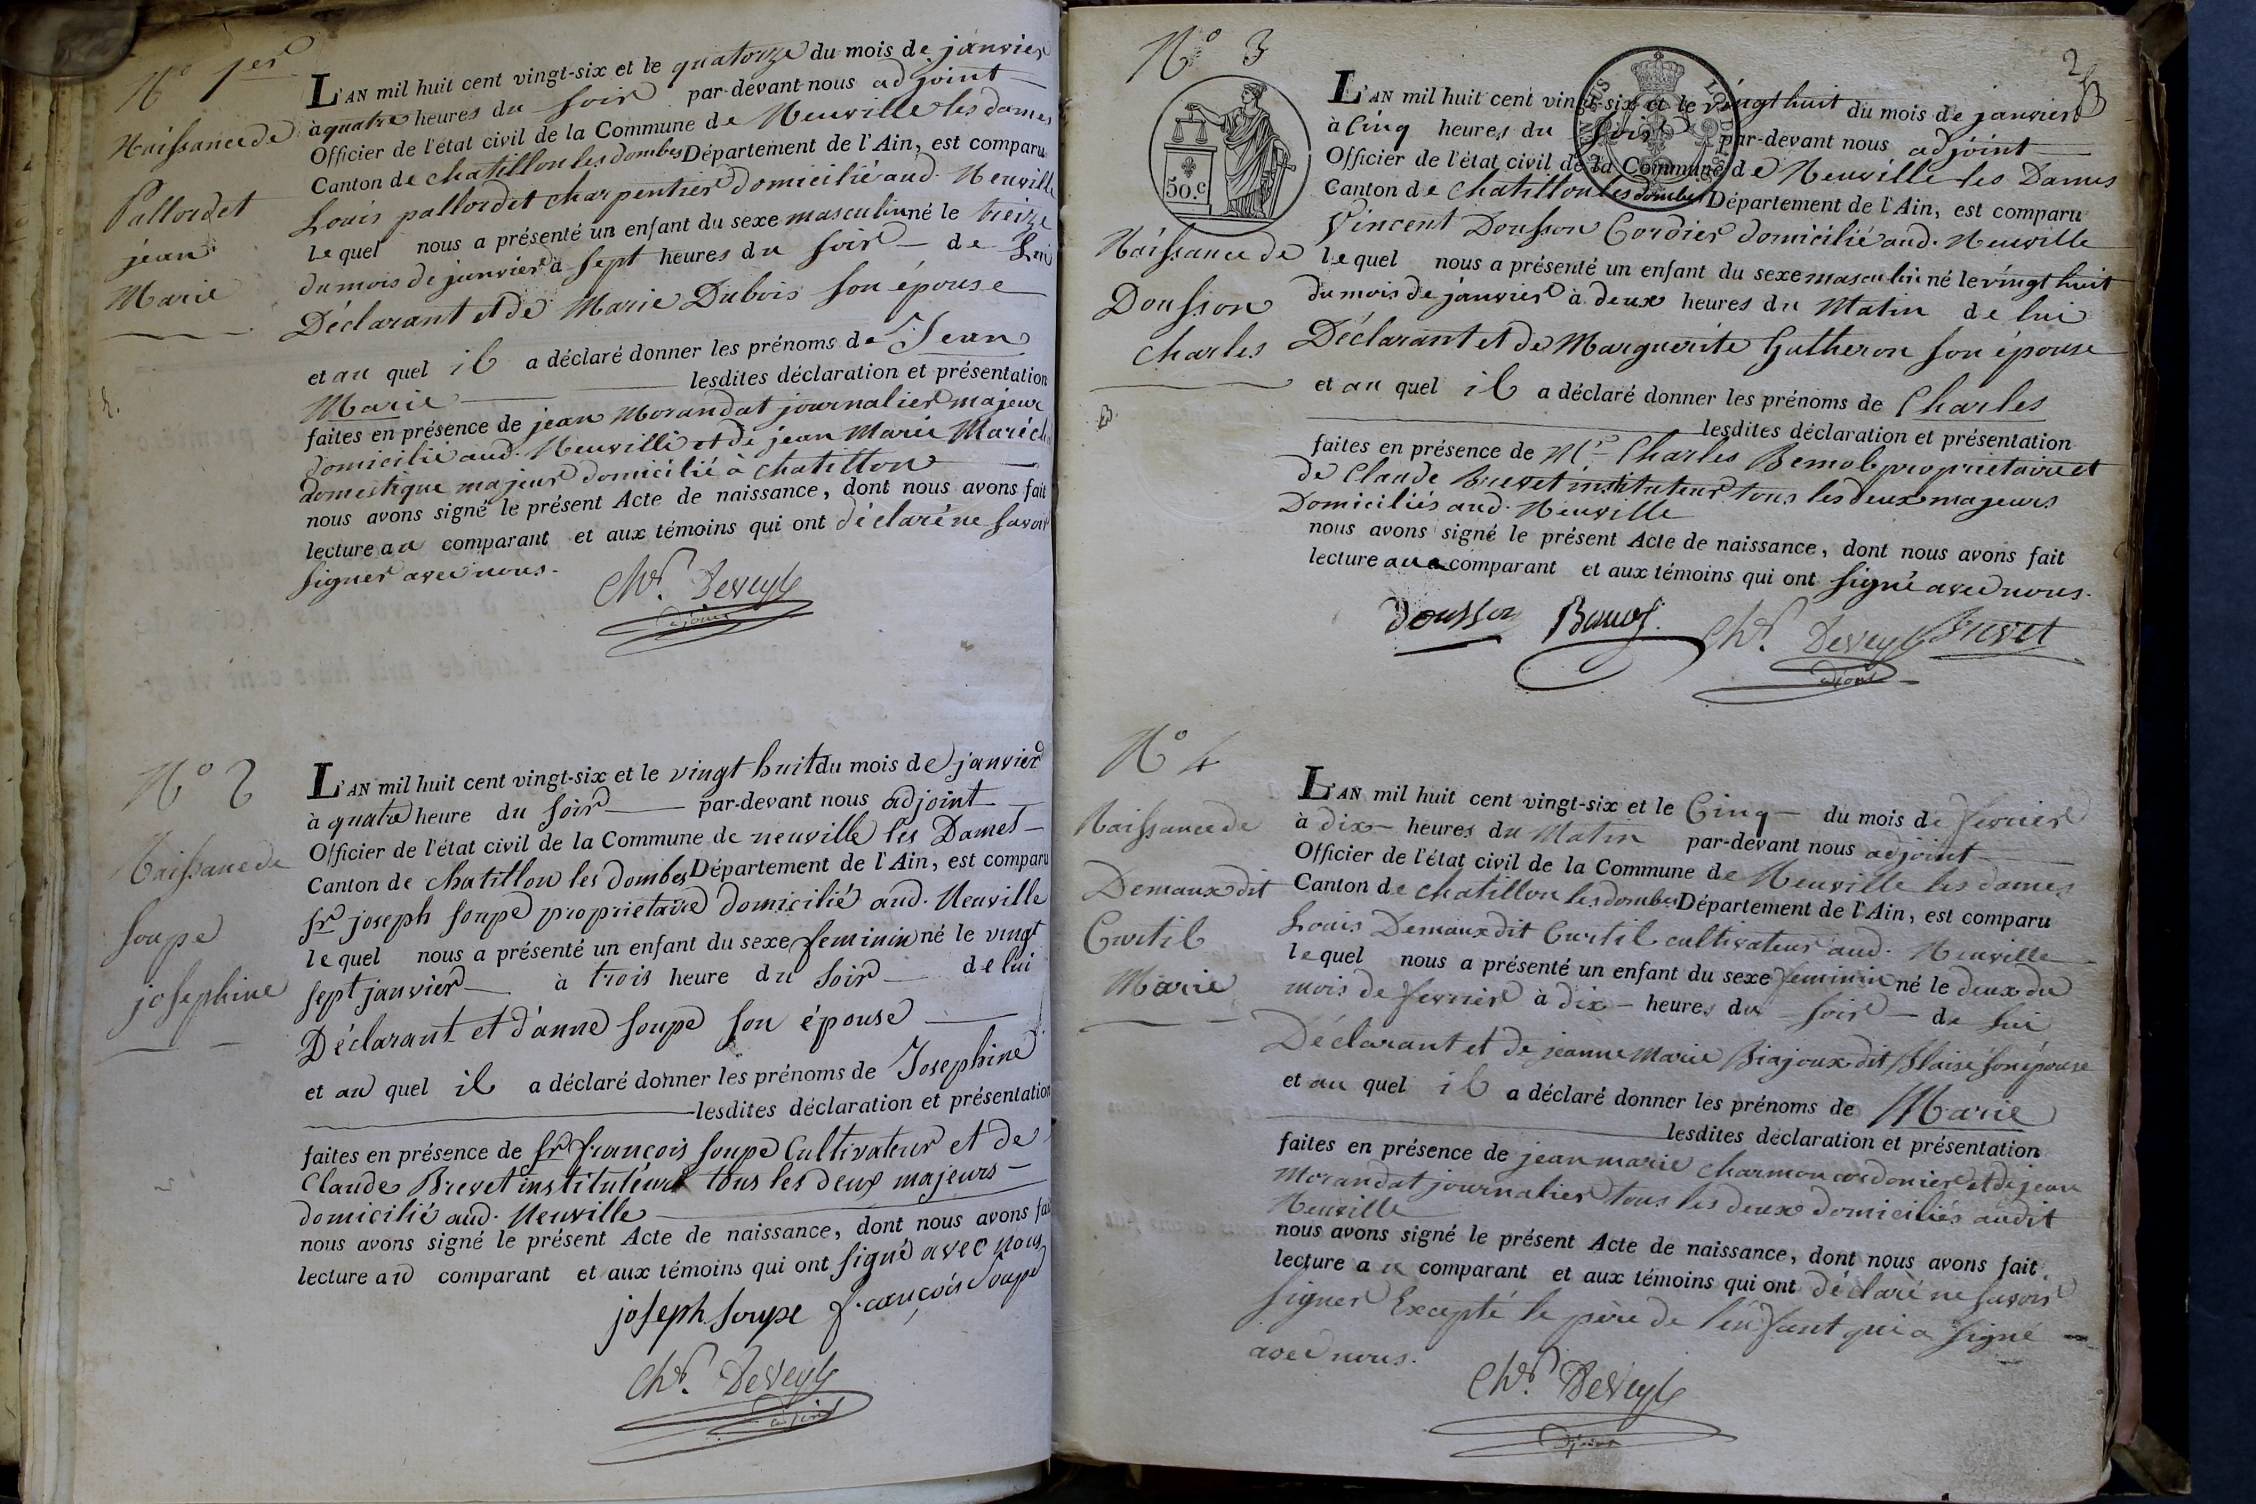 N° 1er
Naissance de
Pallordet
jéan
Marie
L'AN mil huit cent vingt-six et le quatorze du mois de janvier
à quatre heures du soir par-devant nous adjoint
Officier de l'état civil de la Commune de Neuville les dames
Canton de chatillon les dombes Département de l'Ain, est comparu
Louis pallordet charpentier domicilié aud. Neuville
lequel nous a présenté un enfant du sexe masculin né le treize
du mois de janvier à sept heures du soir de lui
Déclarant et de Marie Dubois son épouse
et au quel il a déclaré donner les prénoms de Jean
Marie lesdites déclaration et présentation
faites en présence de jean Morandat journalier majeur
domicilié aud. Neuville et de jean Marie Maréch
domestique majeur domicilié à chatillon
nous avons signé le présent Acte de naissance, dont nous avons fait
lecture au comparant et aux témoins qui ont déclaré ne savoir
signer avec nous.
Chr. Deveyle
adjoint
N° 2
Naissance de
Soupe
josephine
L'AN mil huit cent vingt-six et le vingt huit du mois de janvier
à quatre heure du soir par-devant nous adjoint
Officier de l'état civil de la Commune de neuville les Dames
Canton de chatillon les dombes Département de l'Ain, est comparu
Sr joseph soupe propriétaire domicilié aud. Neuville
lequel nous a présenté un enfant du sexe feminin né le vingt
sept janvier à trois heure du soir de lui
Déclarant et d'anne soupe son épouse
et au quel il a déclaré donner les prénoms de Josephine
lesdites déclaration et présentation
faites en présence de Sr françois soupe Cultivateur et de
Claude Brevet instituteur tous les deux majeurs
domicilié aud. Neuville
nous avons signé le présent Acte de naissance, dont nous avons fai
lecture au comparant et aux témoins qui ont signé avec nous
joseph soupe françois Soupe
Chr. Deveyle
adjoint
2
N° 3
50.c
Naissance de
Dousson
Charles
L'AN mil huit cent vingt-six et le vingt huit du mois de janvier
à Cinq heures du soir par-devant nous adjoint
Officier de l'état civil de la Commune de Neuville les Dames
Canton de chatillon les dombes Département de l'Ain, est comparu
Vincent Dousson Cordier domicilié aud. Neuville
lequel nous a présenté un enfant du sexe masculin né le vingt huit
du mois de janvier à deux heures du Matin de lui
Déclarant et de Marguerite Gutheron son épouse
et au quel il a déclaré donner les prénoms de Charles
lesdites déclaration et présentation
faites en présence de Mr Charles propriétaire et
de Claude Brevet instituteur tous les deux majeurs
Domiciliés aud. Neuville
nous avons signé le présent Acte de naissance, dont nous avons fait
lecture au comparant et aux témoins qui ont signé avec nous.
Dousson Chr. Deveyle Brevet
adjoint
N° 4
Naissance de
Demaux dit
Curtil
Marie
L'AN mil huit cent vingt-six et le Cinq du mois de fevrier
à dix heures du Matin par-devant nous adjoint
Officier de l'état civil de la Commune de Neuville les dames
Canton de chatillon les dombes Département de l'Ain, est comparu
Louis Demaux dit Curtil cultivateur aud. Neuville
lequel nous a présenté un enfant du sexe féminin né le deux du
mois de fevrier à dix heures du soir de lui
Déclarant et de jeanne Marie Biajoux dit Blaise son épouse
et au quel il a déclaré donner les prénoms de Marie
lesdites déclaration et présentation
faites en présence de jean marie charmon cordonier et de jean
Morandat journalier tous les deux domiciliés audit
Neuville
nous avons signé le présent Acte de naissance, dont nous avons fait
lecture au comparant et aux témoins qui ont déclaré ne savoir
signer Excepté le père de l'enfant qui a signé
avec nous.
Chr. Deveyle
adjoint